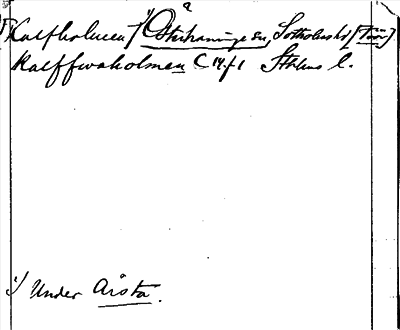 Kalfholmen 1) Österhaninge sn, Sotholms hd [Törn].
Kalffwaholmen C 14:1 Sthlms l.
1) Under Årsta.